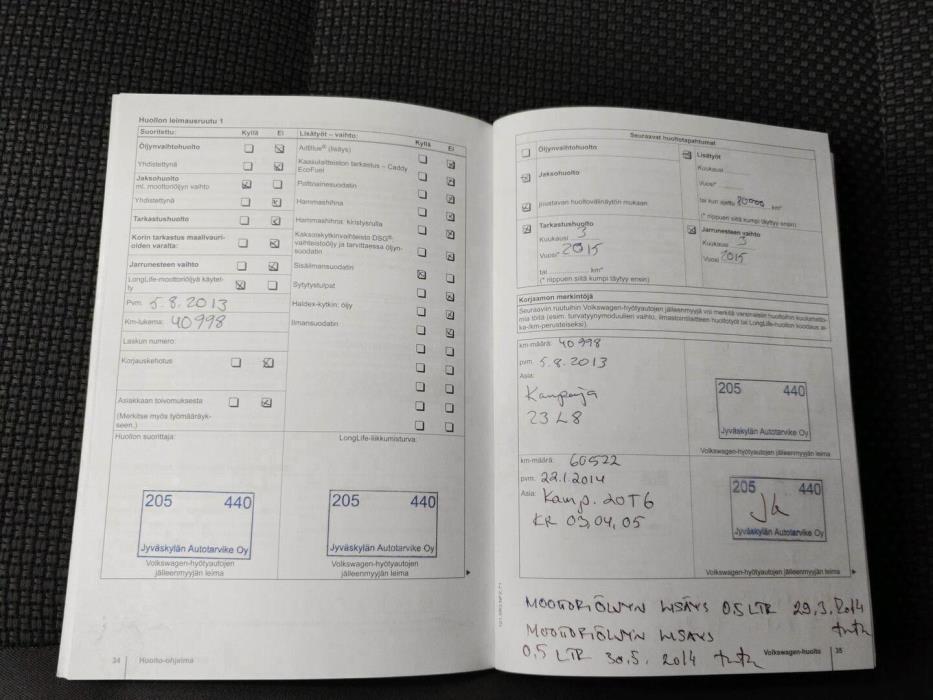 Huollon leimausruutu 1
Suoritettu: Kyllä Ei
Öljynvaihtohuolto
Yhdistettynä
Jaksohuolto
ml. moottoriöljyn vaihto
Yhdistettynä
Tarkastushuolto
Korin tarkastus maalivauri-
oiden varalta:
Jarrunesteen vaihto
LongLife-moottoriöljyä käytet-
ty
Pvm. 5.8.2013
Km-lukema: 40998
Laskun numero:
Korjauskehotus
Asiakkaan toivomuksesta
(Merkitse myös työmääräyk-
seen.)
Huollon suorittaja:
205 440
Jyväskylän Autotarvike Oy
Volkswagen-hyötyautojen
jälleenmyyjän leima
34 Huolto-ohjelma
Lisätyöt – vaihto: Kyllä Ei
AdBlue® (lisäys)
Kaasulaitteiston tarkastus – Caddy
EcoFuel
Polttoainesuodatin
Hammashihna
Hammashihna: kiristysrulla
Kaksoiskytkinvaihteisto DSG®:
vaihteistoöljy ja tarvittaessa öljyn-
suodatin
Sisäilmansuodatin
Sytytystulpat
Haldex-kytkin: öljy
Ilmansuodatin
LongLife-liikkumisturva:
205 440
Jyväskylän Autotarvike Oy
Volkswagen-hyötyautojen
jälleenmyyjän leima
Seuraavat huoltotapahtumat
Öljynvaihtohuolto
Jaksohuolto
joustavan huoltovälinäytön mukaan
Tarkastushuolto
Kuukausi 3
Vuosi* 2015
tai km*
(* riippuen siitä kumpi täytyy ensin)
Lisätyöt
Kuukausi
Vuosi*
tai kun ajettu km*
(* riippuen siitä kumpi täytyy ensin)
Jarrunesteen vaihto
Kuukausi 3
Vuosi 2015
Korjaamon merkintöjä
Seuraaviin ruutuihin Volkswagen-hyötyautojen jälleenmyyjä voi merkitä varsinaisiin huoltoihin kuulumatto-
mia töitä (esim. turvatyynymoduulien vaihto, ilmastointilaitteen huoltotyöt tai LongLife-huollon koodaus ai-
ka-/km-perusteiseksi).
km-määrä: 40998
pvm. 5.8.2013
Asia:
Kampanja
23L8
205 440
Jyväskylän Autotarvike Oy
Volkswagen-hyötyautojen jälleenmyyjän leima
km-määrä: 60522
pvm. 22.1.2014
Asia: Kamp. 20T6
KR 03,04,05
205 440
Jyväskylän Autotarvike Oy
Volkswagen-hyötyautojen jälleenmyyjän leima
MOOTTORIÖLJYN LISÄYS 0,5 LTR 29.3.2014
MOOTTORIÖLJYN LISÄYS
0,5 LTR 30.5.2014
Volkswagen-huolto 35